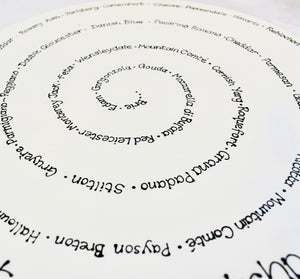 Brie · Edam · Gorgonzola · Gouda · Mozzarella di Bufala · Red Leicester · Monterey Jack · Feta · Wensleydale · Mountain Comté · Cornish Yarg · Roquefort · Grana Padano · Stilton · Gruyère · Parmigiano Reggiano · Double Gloucester · Danish Blue · Pecorino Romano · Cheddar · Parmesan
Mountain Comté · Payson Breton ·
Rosary Ash ·
Camembert ·